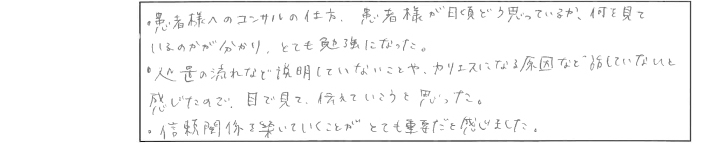 ・患者様へのコンサルの仕方、患者様が日頃どう思っているか、何を見て
いるのかが分かり、とても勉強になった。
・処置の流れなど説明していないことや、カリエスになる原因など話していないと
感じたので、目で見て、伝えていこうと思った。
・信頼関係を築いていくことがとても重要だと感じました。